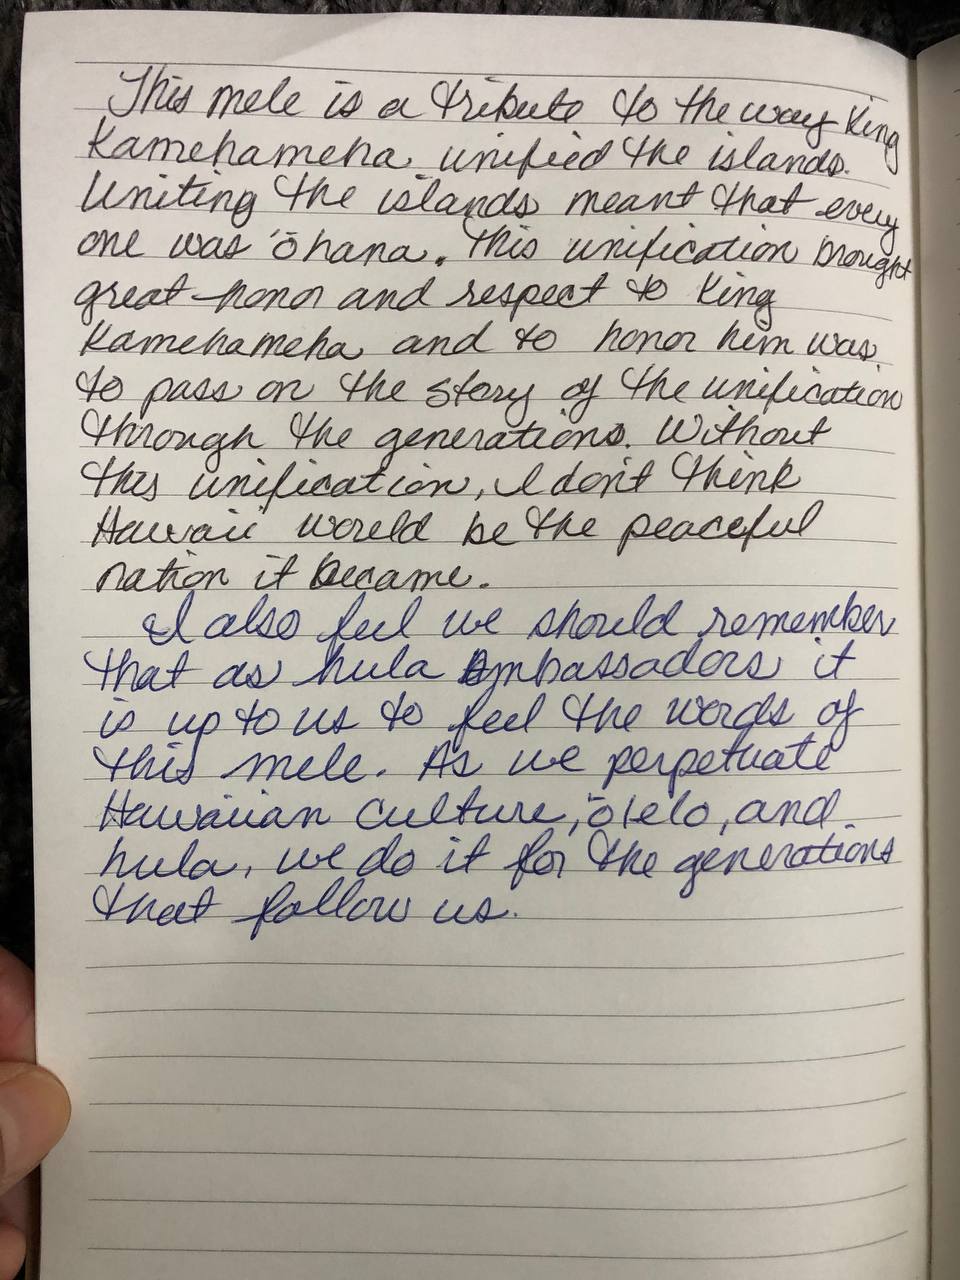 This mele is a tribute to the way King
Kamehameha unified the islands.
Uniting the islands meant that every
one was 'ōhana. This unification brought
great honor and respect to King
Kamehameha and to honor him was
to pass on the story of the unification
through the generations. Without
this unification, I don't think
Hawaii would be the peaceful
nation it became.
I also feel we should remember
that as hula Ambassadors it
is up to us to feel the words of
this mele. As we perpetuate
Hawaiian culture, 'ōlelo, and
hula, we do it for the generations
that follow us.